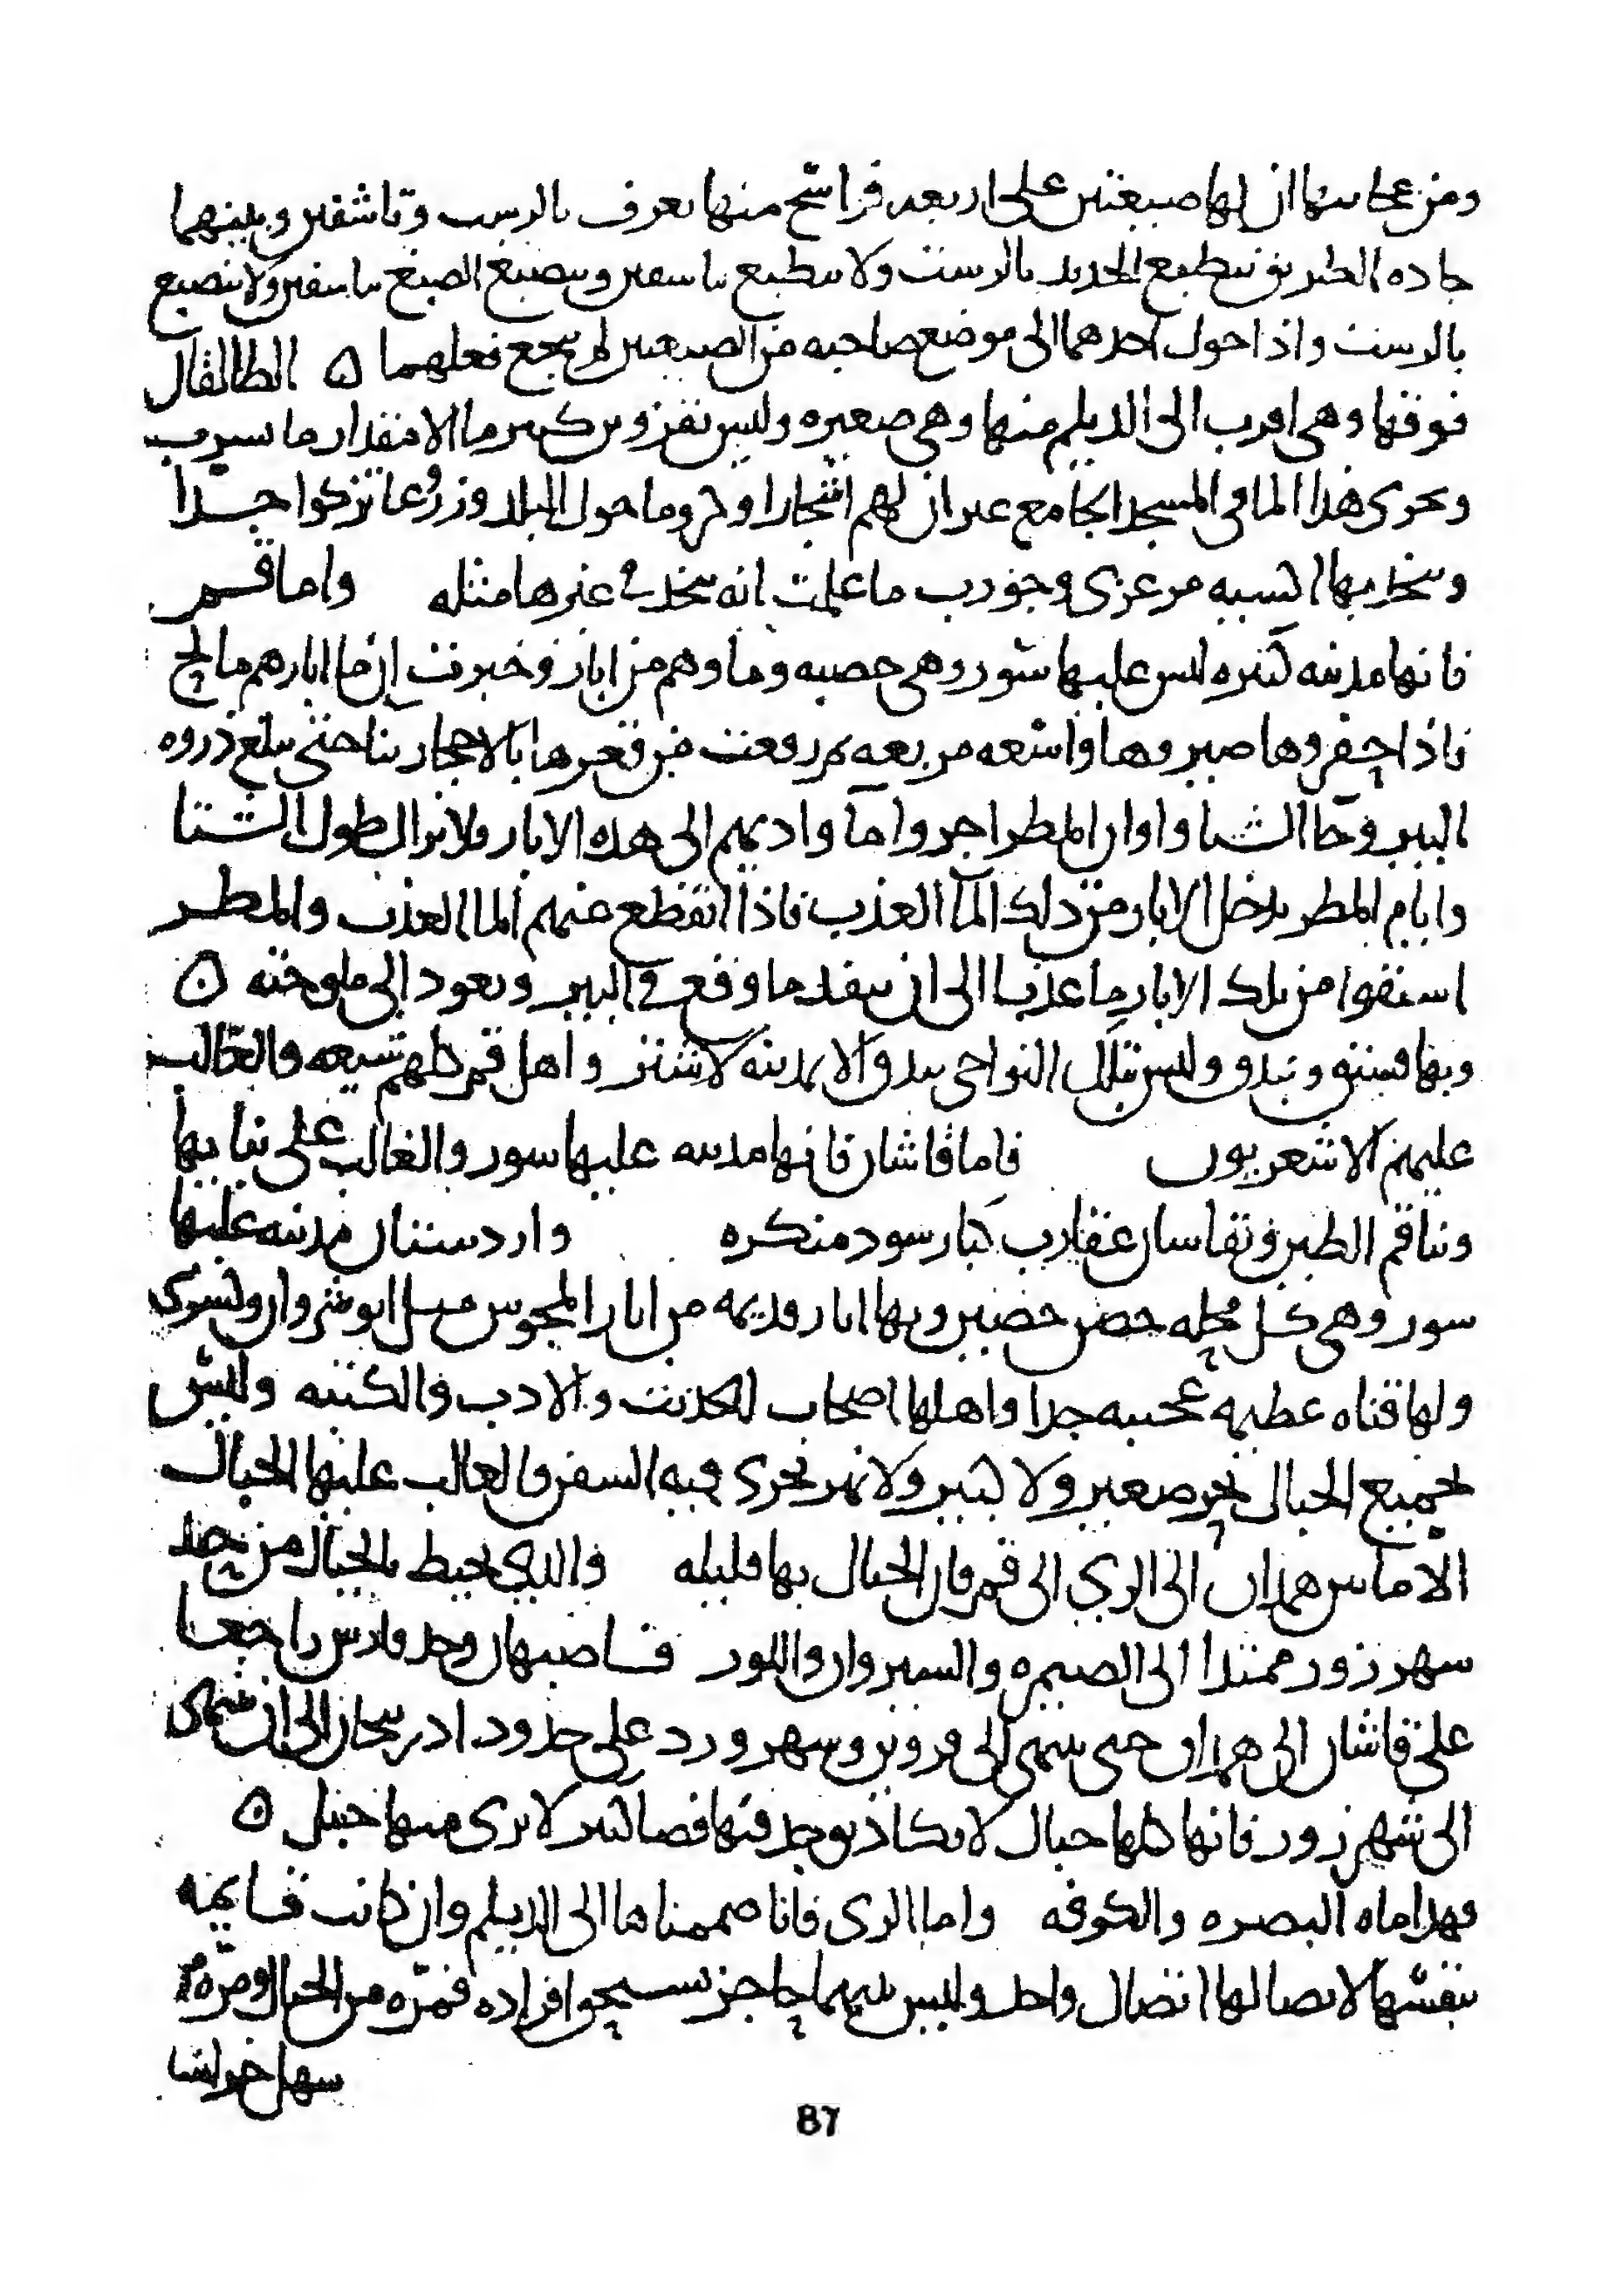 ومن عجائبها ان لها صبيغتين على اربعه فراسخ منها تعرف بالرست وتاشقين وبينهما
جاده الطريق ينطبع الحديد بالرست ولا ينطبع بتاسقين وينصبغ الصبغ بتاسقين ولا ينصبغ
بالرست واذا حول احدهما الى موضع صاحبه من الصبيغتين لم ينجع فعلهما ه الطالقان
فوقها وهي اقرب الى الديلم منها وهي صغيره وليس بقزوين كبير ما الا مقدار ما يشرب
ويجرى هذا الما في المسجد الجامع غير ان لهم اشجارا وكروما حول البلد وزروعا تزكوا جدا
ويتخذ بها اكسيه مرعزى وجورب ما علمت انه يتخذ في غيرها مثله واما قم
فانها مدينه كبيره ليس عليها سور وهي خصبه وماوهم من ابار وخبرت ان ما ابارهم مالح
فاذا حفروها صيروها واسعه مربعه ثم رفعت من قعرها بالاحجار بنا حتى يبلغ ذروه
البير وجا الشتا واوان المطر اجروا ما واديهم الى هذه الابار ولا يزال طول الشتا
وايام المطر يدخل الابار من ذلك الما العذب فاذا انقطع عنهم الما العذب والمطر
استقوا من تلك الابار ما عذبا الى ان ينفد ما وقع في البير ويعود الى ملوحته ه
وبها فستق وبندق وليس بتلك النواحي بندق الا بمدينه لاشتر واهل قم كلهم شيعه والغالب
عليهم الاشعريون فاما قاشان فانها مدينه عليها سور والغالب على بنايها
وبنا قم الطين وبقاسان عقارب كبار سود منكره واردستان مدينه عليها
سور وهي كل محله حصن حصين وبها اثار قديمه من اثار المجوس مثل انوشروان وكسرى
ولها قناه عظيمه عجيبه جدا واهلها اصحاب للحديث والادب والكتبه وليس
بجميع الجبال بحر صغير ولا كبير ولا نهر تجرى فيه السفن والغالب عليها الجبال
الا ما بين همدان الى الرى الى قم فان الجبال بها قليله والذي يحيط بالجبال من حد
سهرزور ممتدا الى الصيمره والسيروان واللور فاصبهان وحد فارس راجعا
على قاشان الى همدان حتى ينتهى الى قزوين وسهرورد على حدود ادربيجان الى ان ينتهى
الى شهرزور فانها كلها جبال لا تكاد توجد فيها فضا كثير لا يرى منها جبل ه
فهذا ماه البصره والكوفه واما الرى فانا ضممناها الى الديلم وان كانت قايمه
بنفسها لاتصالها اتصال واحد وليس بينهما حاجز يستحق افراده فمره من الجبال ومره
سهل خراسان
87